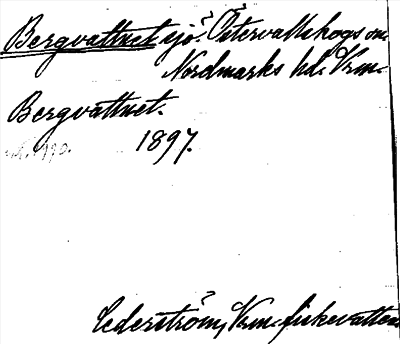 Bergvattnet sjö. Östervallskogs sn
Nordmarks hd. Vrm.
Bergvattnet.
1897.
Cederström, Vrm. fiskevatten